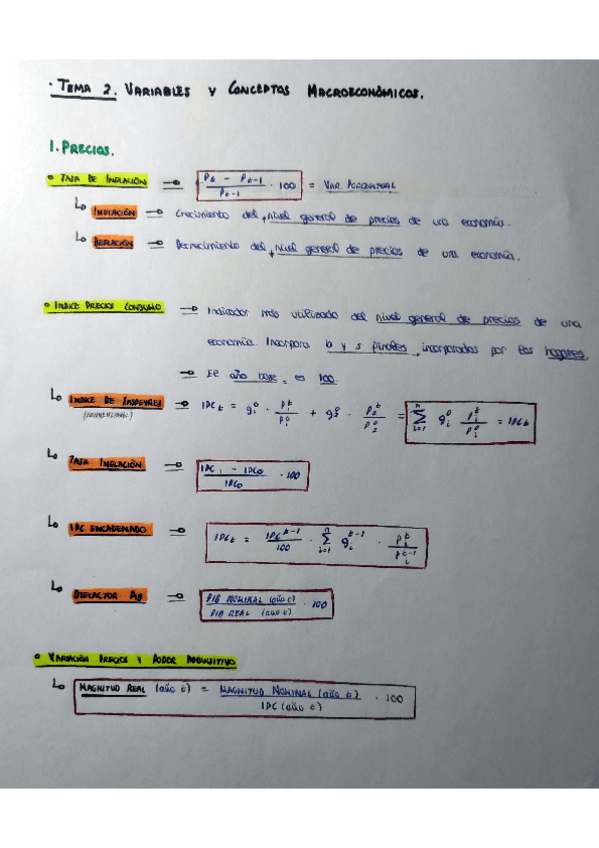 · TEMA 2. VARIABLES Y CONCEPTOS MACROECONÓMICOS.
1. PRECIOS.
• TASA DE INFLACIÓN → (Pt - Pt-1) / Pt-1 · 100 = VAR. PORCENTUAL
↳ INFLACIÓN → Crecimiento del nivel general de precios de una economía.
↳ DEFLACIÓN → Decrecimiento del nivel general de precios de una economía.
• INDICE PRECIOS CONSUMO → Indicador más utilizado del nivel general de precios de una
economía. Incorpora b y s finales, incorporados por los hogares.
→ El año base, es 100.
↳ INDICE DE LASPEYRES → IPCt = g_1^0 · P_1^t / P_1^0 + g_2^0 · P_2^t / P_2^0 = Σ_{i=1}^n g_i^0 P_i^t / P_i^0 = IPCt
↳ TASA INFLACIÓN → (IPC1 - IPC0) / IPC0 · 100
↳ IPC ENCADENADO → IPCt = IPC^{t-1} / 100 · Σ_{i=1}^n g_i^{t-1} · P_i^t / P_i^{t-1}
↳ DEFLACTOR PIB → PIB NOMINAL (año t) / PIB REAL (año t) · 100
• VARIACIÓN PRECIOS Y PODER ADQUISITIVO
↳ MAGNITUD REAL (año t) = MAGNITUD NOMINAL (año t) / IPC (año t) · 100